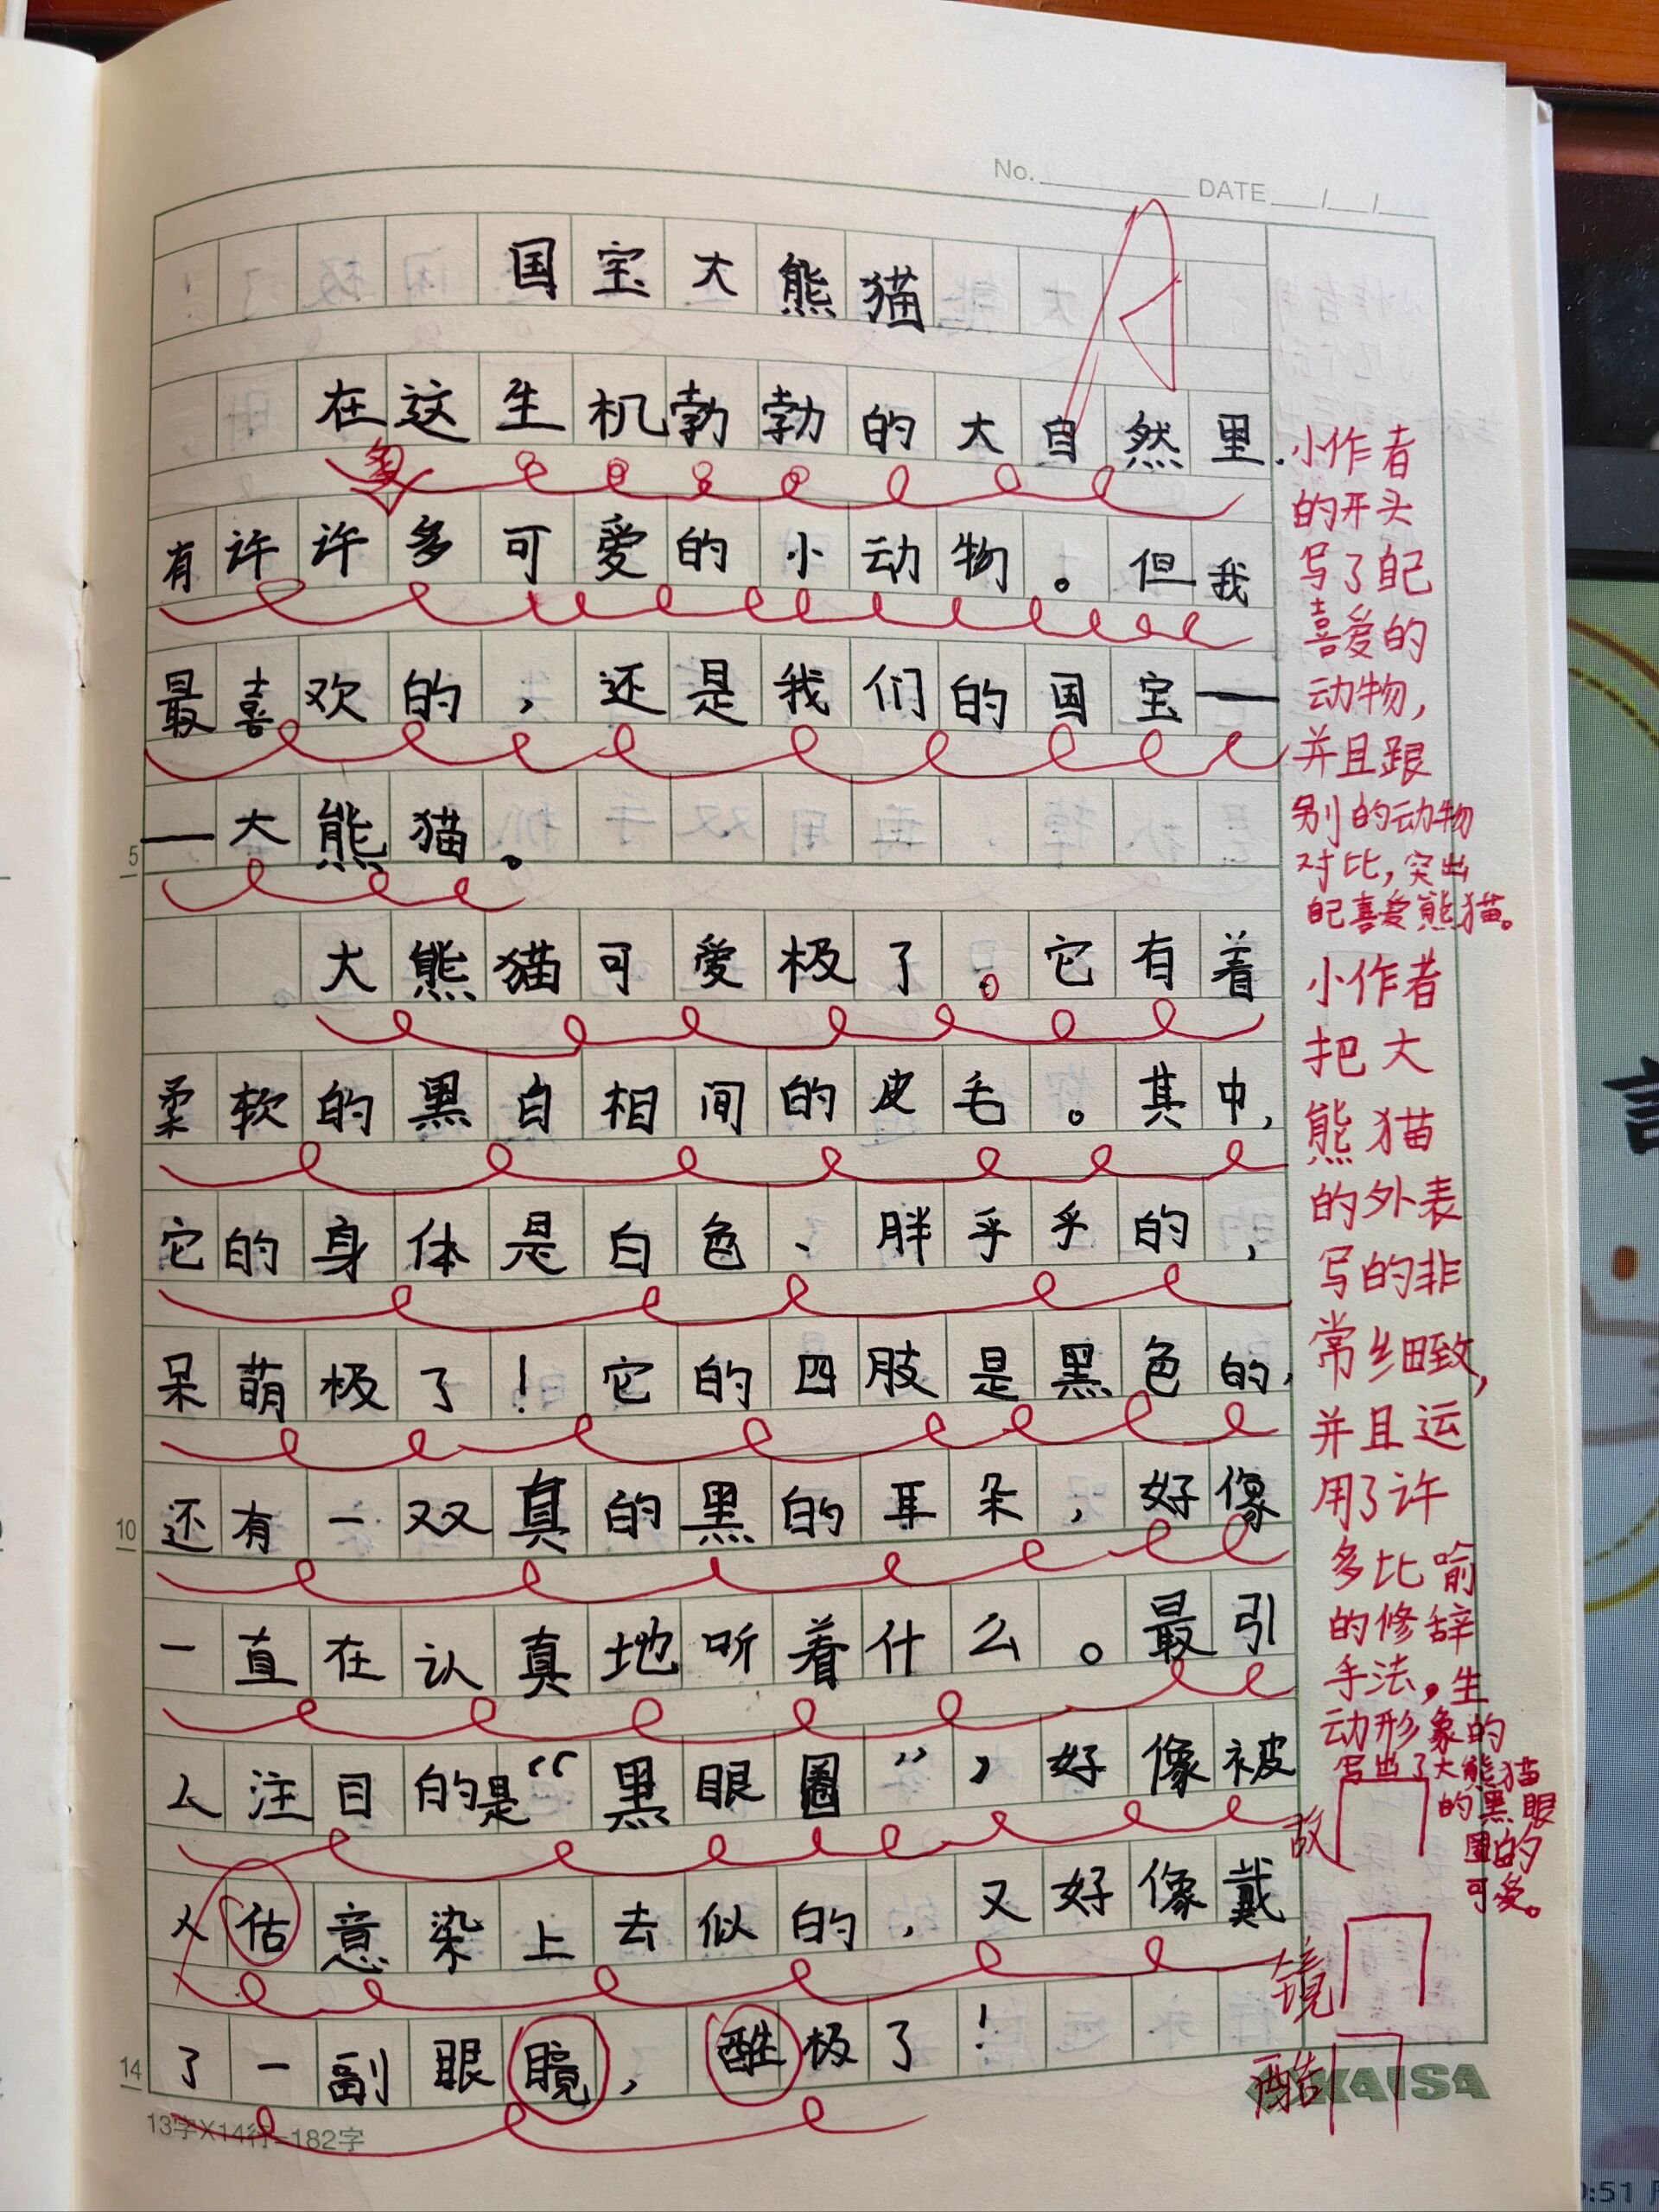 No. DATE / /
国宝大熊猫
在这生机勃勃的大自然里.
有许许多可爱的小动物。但我
多
最喜欢的，还是我们的国宝—
—大熊猫。
大熊猫可爱极了。它有着
柔软的黑白相间的皮毛。其中,
它的身体是白色、胖乎乎的，
呆萌极了！它的四肢是黑色的,
还有一双真的黑的耳朵，好像
一直在认真地听着什么。最引
人注目的是“黑眼圈”，好像被
人估意染上去似的，又好像戴
了一副眼镜，酷极了！
小作者
的开头
写了自己
喜爱的
动物，
并且跟
别的动物
对比，突出
自己喜爱熊猫。
小作者
把大
熊猫
的外表
写的非
常细致，
并且运
用了许
多比喻
的修辞
手法，生
动形象的
写出了大熊猫
的黑眼
圈的
可爱。
故
镜
酷
KAISA
5
10
14
13字X14行=182字
:51